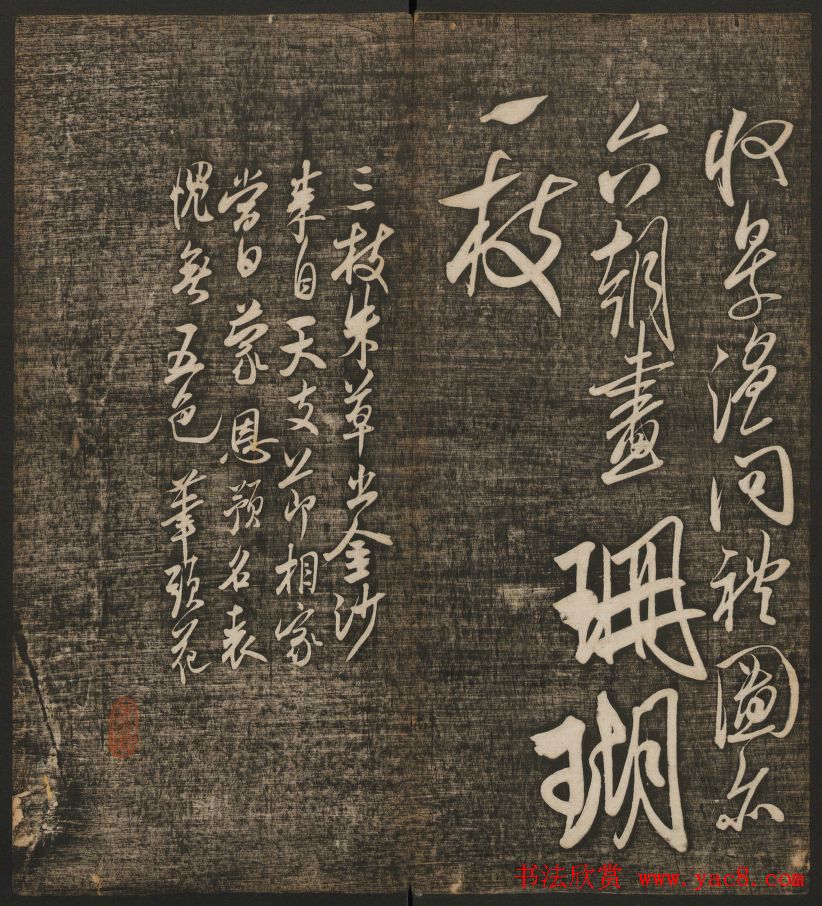 收景温問禮圖亦
六朝畫珊瑚
一枝
三枝朱草出金沙
来自天支節相家
當日蒙恩預名表
愧無五色筆頭花
书法欣赏 www.yac8.com